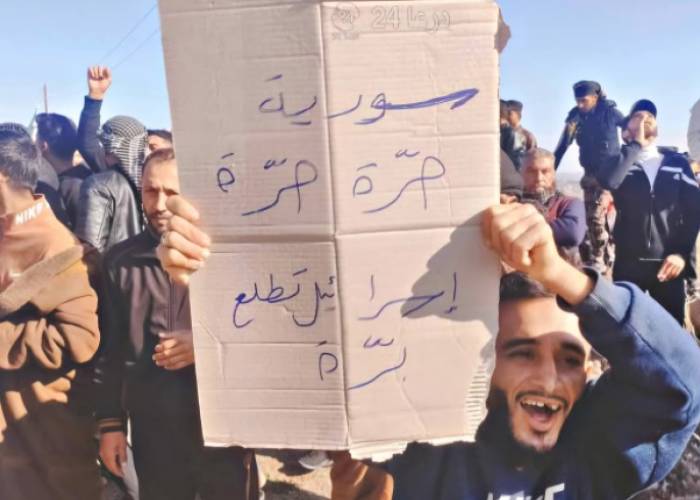 درعا 24
سورية
حرّة حرّة
إسرائيل تطلع
برّة
NIKE